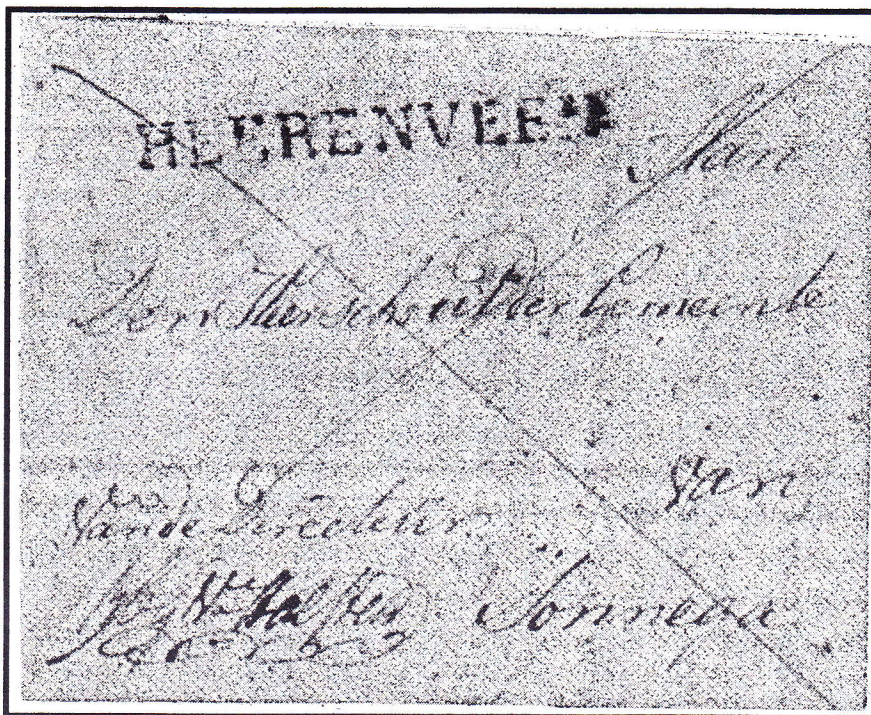 HEERENVEEN
Aan
Den Heer Schout der Gemeente
Van
Van de Directeur
Sonnega